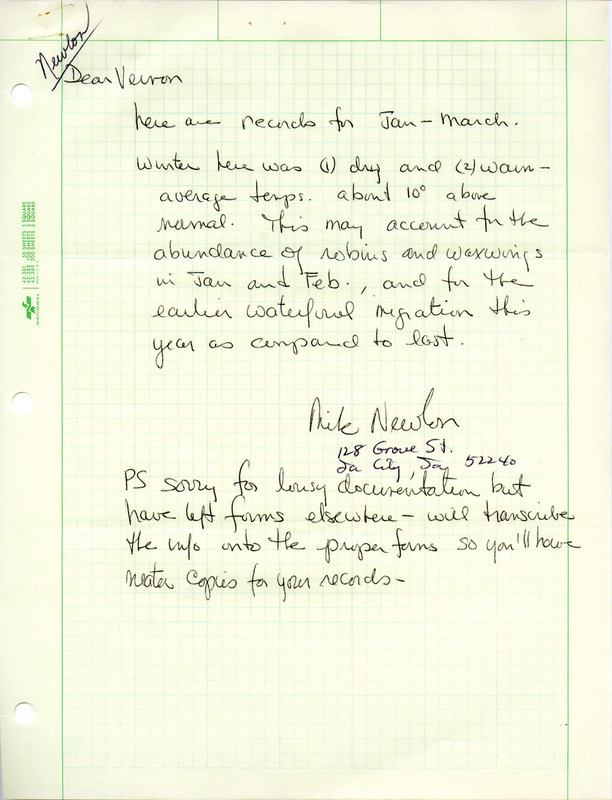 Newlon
Dear Vernon
here are records for Jan - March.
Winter here was (1) dry and (2) warm -
average temps. about 10° above
normal. This may account for the
abundance of robins and waxwings
in Jan and Feb., and for the
earlier waterfowl migration this
year as compared to last.
Mike Newlon
128 Grove St.
Ia City, Ia 52240
PS sorry for lousy documentation but
have left forms elsewhere - will transcribe
the info onto the proper forms so you'll have
neater copies for your records -
42-381 50 SHEETS 5 SQUARE
42-382 100 SHEETS 5 SQUARE
42-389 200 SHEETS 5 SQUARE
NATIONAL